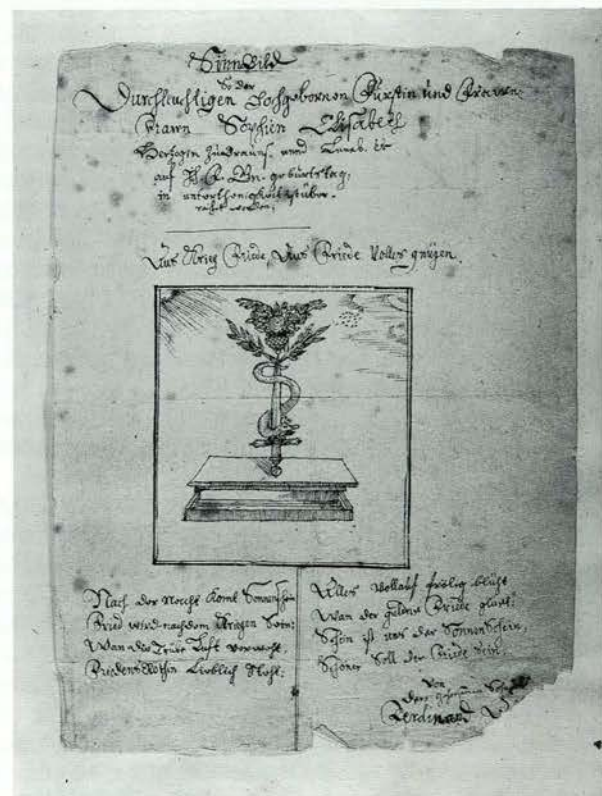 Sinnbild
So der
Durchleuchtigen Hochgebornen Fürstin und Frawen
Frawn Sophien Elisabeth
Herzogin zu Brauns. und Luneb. etc
auf Geburtstag,
in unterthenigkeit über-
reicht worden;
Aus Krieg Friede, Aus Friede Volles gnügen.
Nach der Nacht komt Sonnenschein
Fried wird nach dem Kriegen Sein:
Wan die Trübe Luft
Lieblich
Alles Vollauf frölig blüht
Wan der güldne Friede
Schön ist uns der Sonnen Schein,
Schöner Soll der Friede Sein.
Von
Dero gehorsamen
Ferdinand